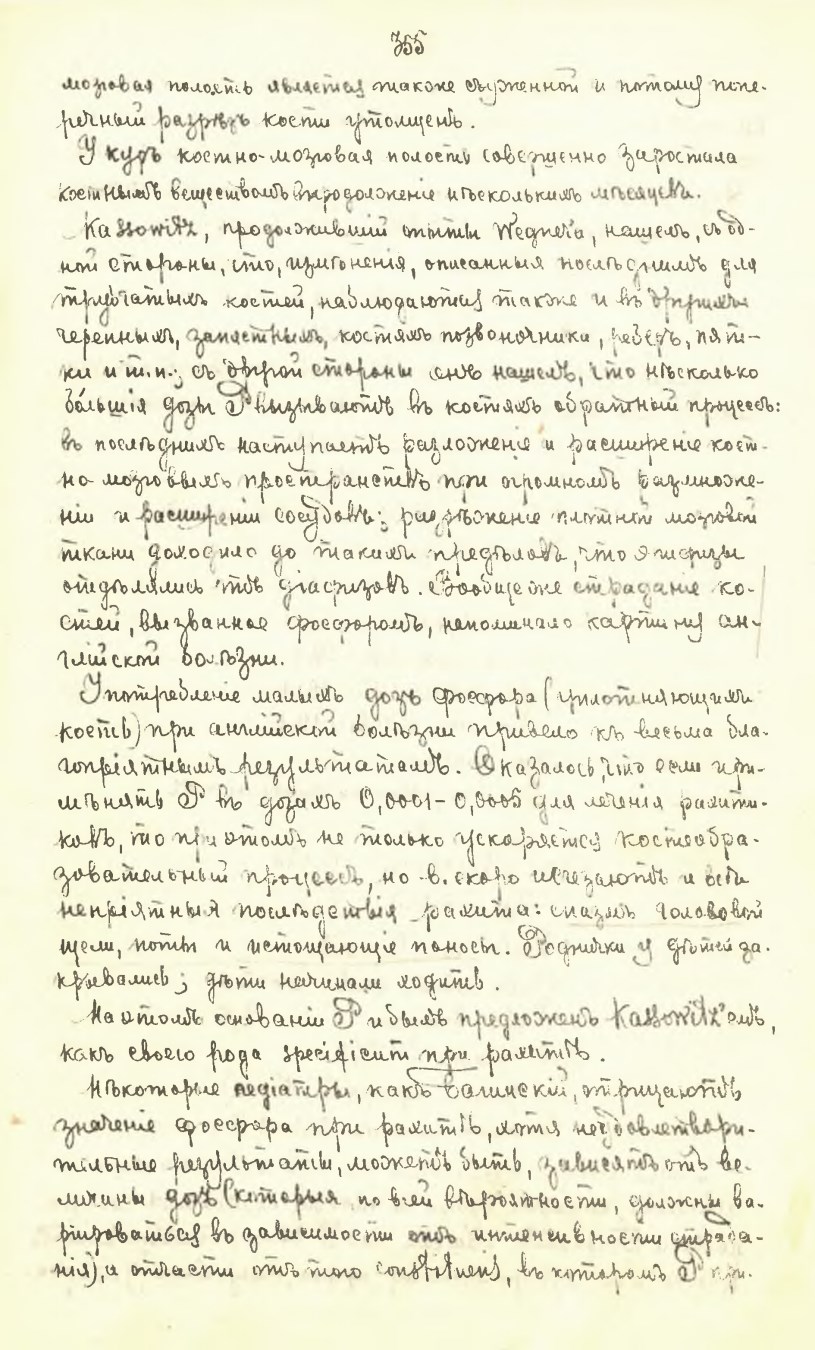 355
мозговая полость является также съуженной и потому попе-
речный разрѣзъ кости утолщенъ.
У куръ костно-мозговая полость совершенно заростала
костнымъ веществомъ впродолженіе нѣсколькихъ мѣсяцевъ.
Kassowitz, продолжившій опыты Wegner'а, нашелъ, съ од-
ной стороны, что, измѣненія, описанныя послѣднимъ для
трубчатыхъ костей, наблюдаются также и въ другихъ
черепныхъ, запястныхъ, костяхъ позвоночника, реберъ, пят-
ки и т.п.; съ другой стороны онъ нашелъ, что нѣсколько
бо́льшія дозы P вызываютъ въ костяхъ обратный процессъ:
въ послѣднихъ наступаетъ разложеніе и расширеніе кост-
но-мозговыхъ пространствъ при огромномъ размноже-
ніи и расширеніи сосудовъ; разрѣженіе плотной мозговой
ткани доходило до такихъ предѣловъ, что эпифизы
отдѣлялись отъ діафизовъ. Вообще же страданіе ко-
стей, вызванное фосфоромъ, напоминало картину ан-
глійской болѣзни.
Употребленіе малыхъ дозъ фосфора (уплотняющихъ
кость) при англійской болѣзни привело къ весьма бла-
гопріятнымъ результатамъ. Оказалось, что если при-
мѣнять P въ дозахъ 0,0001-0,0005 для леченія рахити-
ковъ, то при этомъ не только ускоряется костеобра-
зовательный процессъ, но в. скоро исчезаютъ и всѣ
непріятныя послѣдствія рахита: спазмъ голосовой
щели, поты и истощающіе поносы. Роднички у дѣтей за-
крывались; дѣти начинали ходить.
На этомъ основаніи P и былъ предложенъ Kassowitz'емъ,
какъ своего рода specificum при рахитѣ.
Нѣкоторые педіатры, какъ Багинскій, отрицаютъ
значеніе фосфора при рахитѣ, хотя неудовлетвори-
тельные результаты, можетъ быть, зависятъ отъ ве-
личины дозъ (которыя, по всей вѣроятности, должны ва-
рьироваться въ зависимости отъ интенсивности страда-
нія), и отчасти отъ того constituens, въ которомъ P при-